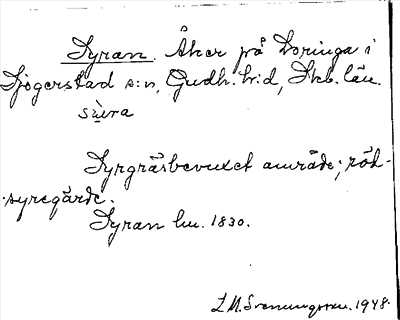 Syran. Åker på Boringa i
Sjögerstad s:n, Gudh. h:d, Skb. län.
sùra
Syrgräsbevuxet område; röd-
syregärde.
Syran lm. 1830.
L.M. Svenungsson. 1948.